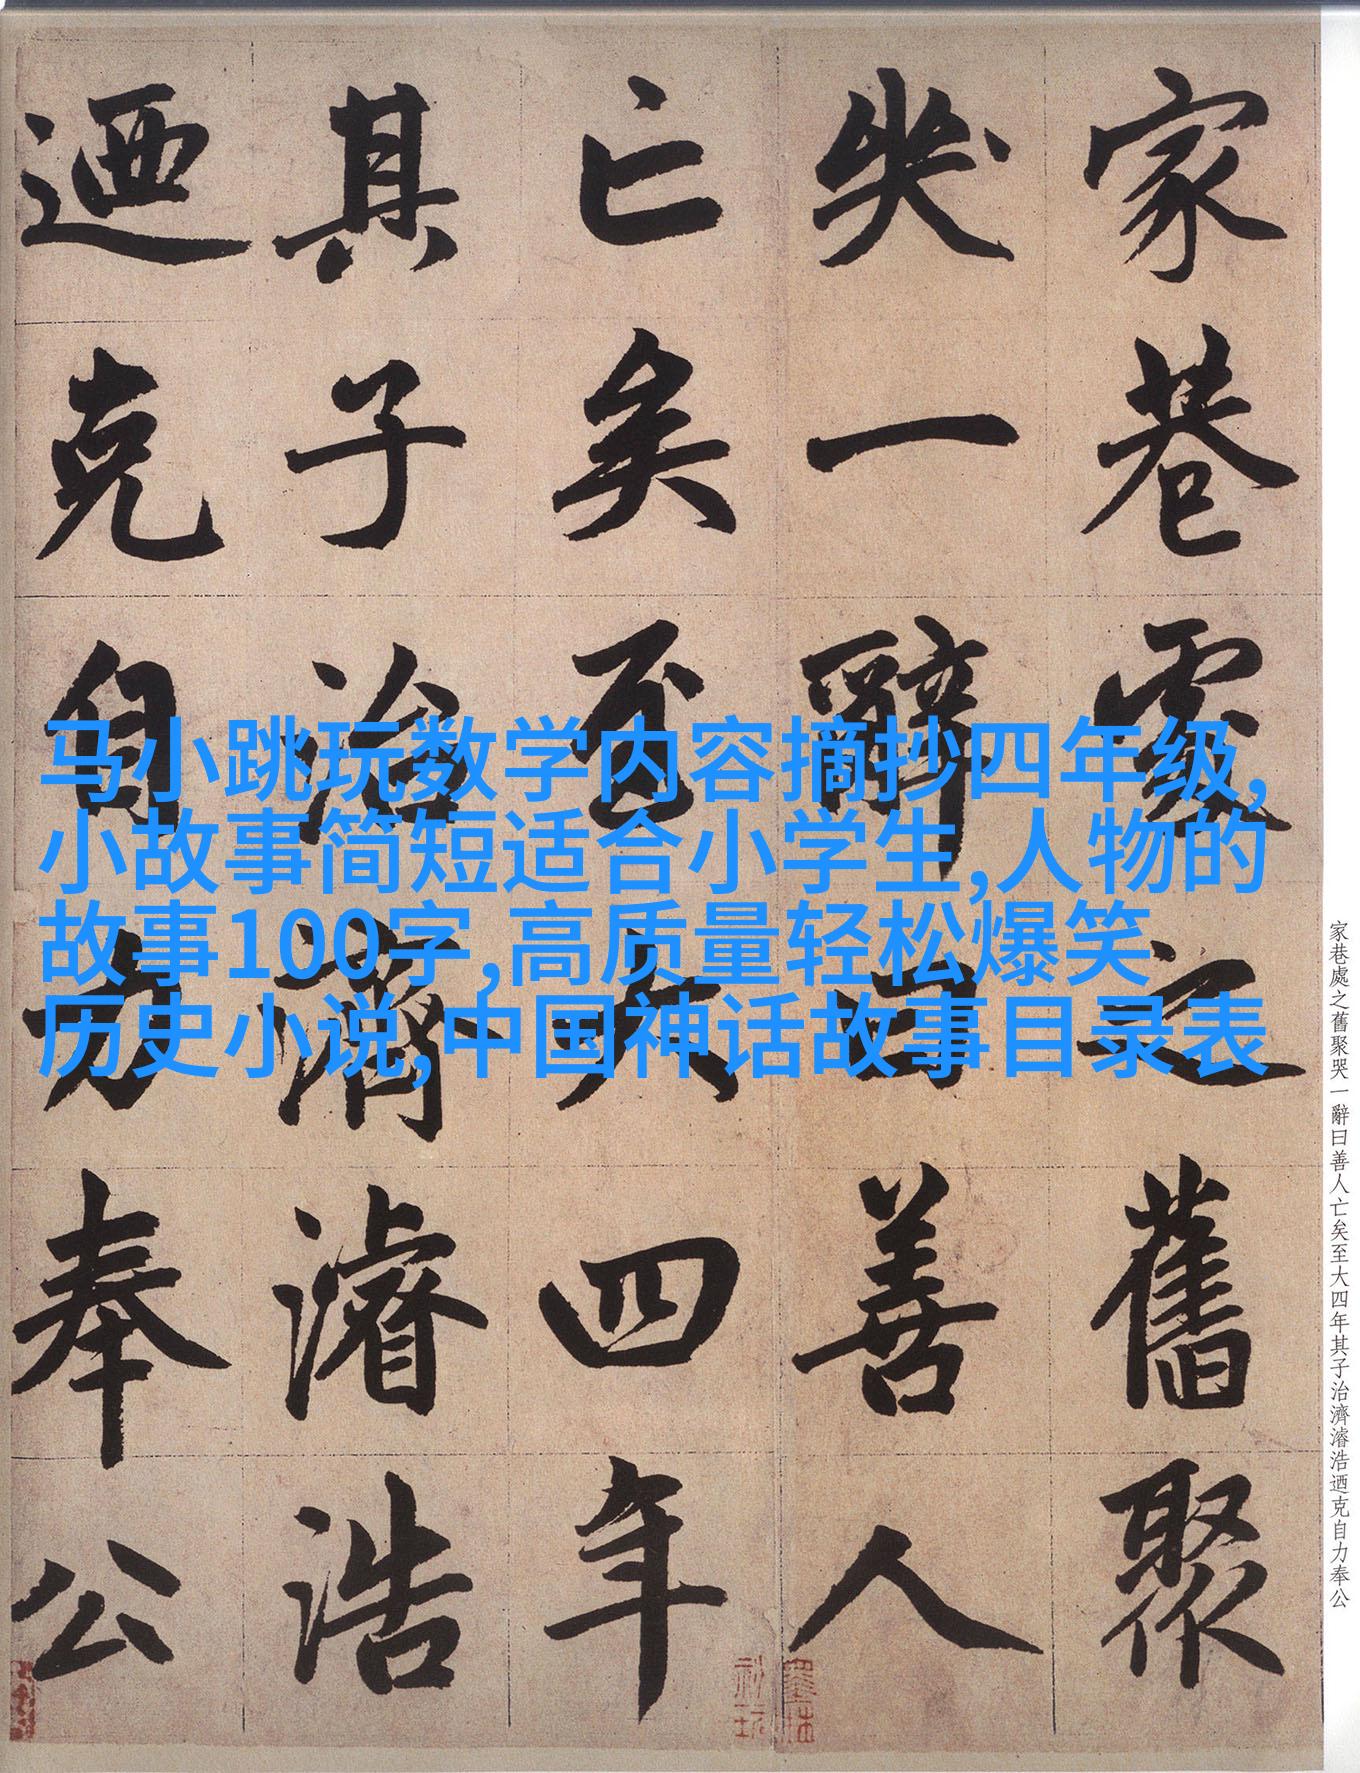 家巷處之舊聚
哭一辭曰善人
亡矣至大四年
其子治濟濬浩
迺克自力奉公
马小跳玩数学内容摘抄四年级,
小故事简短适合小学生,人物的
故事100字,高质量轻松爆笑
历史小说,中国神话故事目录表
家巷處之舊聚哭一辭曰善人亡矣至大四年其子治濟濬浩迺克自力奉公